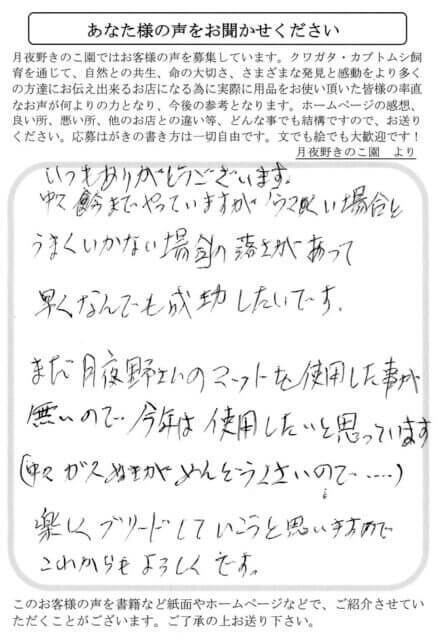 あなた様の声をお聞かせください
月夜野きのこ園ではお客様の声を募集しています。クワガタ・カブトムシ飼
育を通じて、自然との共生、命の大切さ、さまざまな発見と感動をより多く
の方達にお伝え出来るお店になる為に実際に用品をお使い頂いた皆様の率直
なお声が何よりの力となり、今後の参考となります。ホームページの感想、
良い所、悪い所、他のお店との違い等、どんな事でも結構ですので、お送り
ください。応募はがきの書き方は一切自由です。文でも絵でも大歓迎です！
月夜野きのこ園　より
いつもありがとうございます。
までやっていますが うまくいく場合と
うまくいかない場合の落差があって
早くなんでも成功したいです.
まだ月夜野さんのマットを使用した事が
無いので、今年は使用したいと思っています
(中々 ガスぬきがめんどうくさいので……)
楽しくブリードしていこうと思いますので
これからもよろしくです。
このお客様の声を書籍など紙面やホームページなどで、ご紹介させてい
ただくことがございます。ご了承の上お送り下さい。